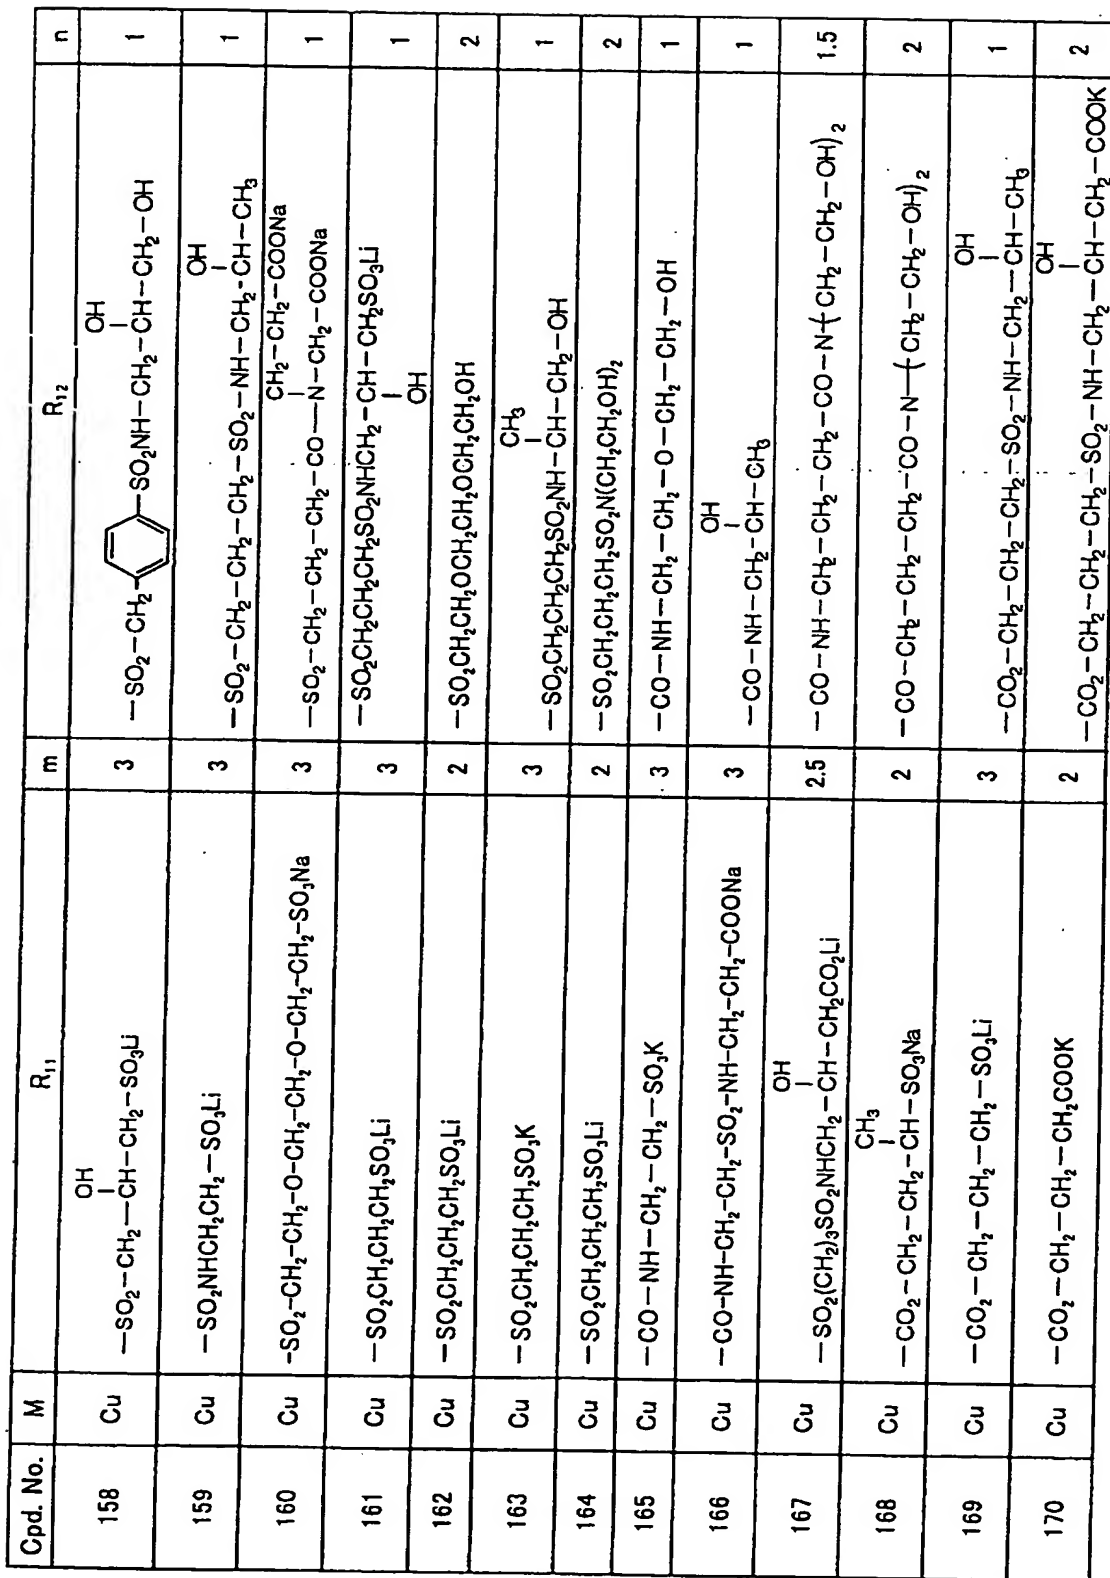 Cpd. No. M R₁₁ m R₁₂ n
OH OH
158 Cu —SO₂—CH₂—CH—CH₂—SO₃Li 3 —SO₂—CH₂— —SO₂NH—CH₂—CH—CH₂—OH 1
OH
159 Cu —SO₂NHCH₂CH₂—SO₃Li 3 —SO₂—CH₂—CH₂—CH₂—SO₂—NH—CH₂—CH—CH₃ 1
CH₂—CH₂—COONa
160 Cu -SO₂-CH₂-CH₂-O-CH₂-CH₂-O-CH₂-CH₂-SO₃Na 3 —SO₂—CH₂—CH₂—CO—N—CH₂—COONa 1
161 Cu —SO₂CH₂CH₂CH₂SO₃Li 3 —SO₂CH₂CH₂CH₂SO₂NHCH₂—CH—CH₂SO₃Li 1
OH
162 Cu —SO₂CH₂CH₂CH₂SO₃Li 2 —SO₂CH₂CH₂OCH₂CH₂OCH₂CH₂OH 2
CH₃
163 Cu —SO₂CH₂CH₂CH₂SO₃K 3 —SO₂CH₂CH₂CH₂SO₂NH—CH—CH₂—OH 1
164 Cu —SO₂CH₂CH₂CH₂SO₃Li 2 —SO₂CH₂CH₂CH₂SO₂N(CH₂CH₂OH)₂ 2
165 Cu —CO—NH—CH₂—CH₂—SO₃K 3 —CO—NH—CH₂—CH₂—O—CH₂—CH₂—OH 1
OH
166 Cu —CO—NH—CH₂—CH₂—SO₂—NH—CH₂—CH₂—COONa 3 —CO—NH—CH₂—CH—CH₃ 1
OH
167 Cu —SO₂(CH₂)₃SO₂NHCH₂—CH—CH₂CO₂Li 2.5 —CO—NH—CH₂—CH₂—CH₂—CO—N(CH₂—CH₂—OH)₂ 1.5
CH₃
168 Cu —CO₂—CH₂—CH₂—CH—SO₃Na 2 —CO—CH₂—CH₂—CH₂—CO—N—(CH₂—CH₂—OH)₂ 2
OH
169 Cu —CO₂—CH₂—CH₂—CH₂—SO₃Li 3 —CO₂—CH₂—CH₂—CH₂—SO₂—NH—CH₂—CH—CH₃ 1
OH
170 Cu —CO₂—CH₂—CH₂—CH₂COOK 2 —CO₂—CH₂—CH₂—CH₂—SO₂—NH—CH₂—CH—CH₂—COOK 2